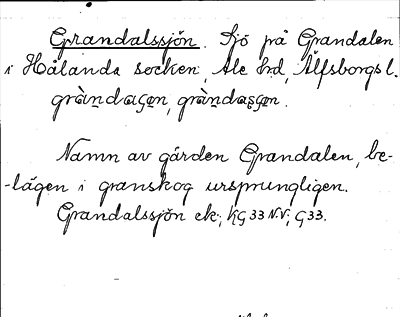 Grandalssjön. Sjö på Grandalen
i Hålanda socken, Ale hd, Älfsborgs l.
Namn av gården Grandalen, be-
-lägen i granskog ursprungligen.
Grandalssjön ek; KG 33 N.V.; G 33.